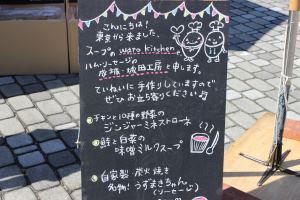 こんにちは!
東京から来ました、
スープの wato kitchen と
ハム・ソーセージの
成城・城田工房 と申します。
ていねいに手作りしていますので
ぜひお立ち寄りください♪
チキンと10種の野菜の
ジンジャーミネストローネ
鮭と白菜の
味噌ミルクスープ
自家製・炭火焼き
名物!うずまきちゃん
(ソーセージ)